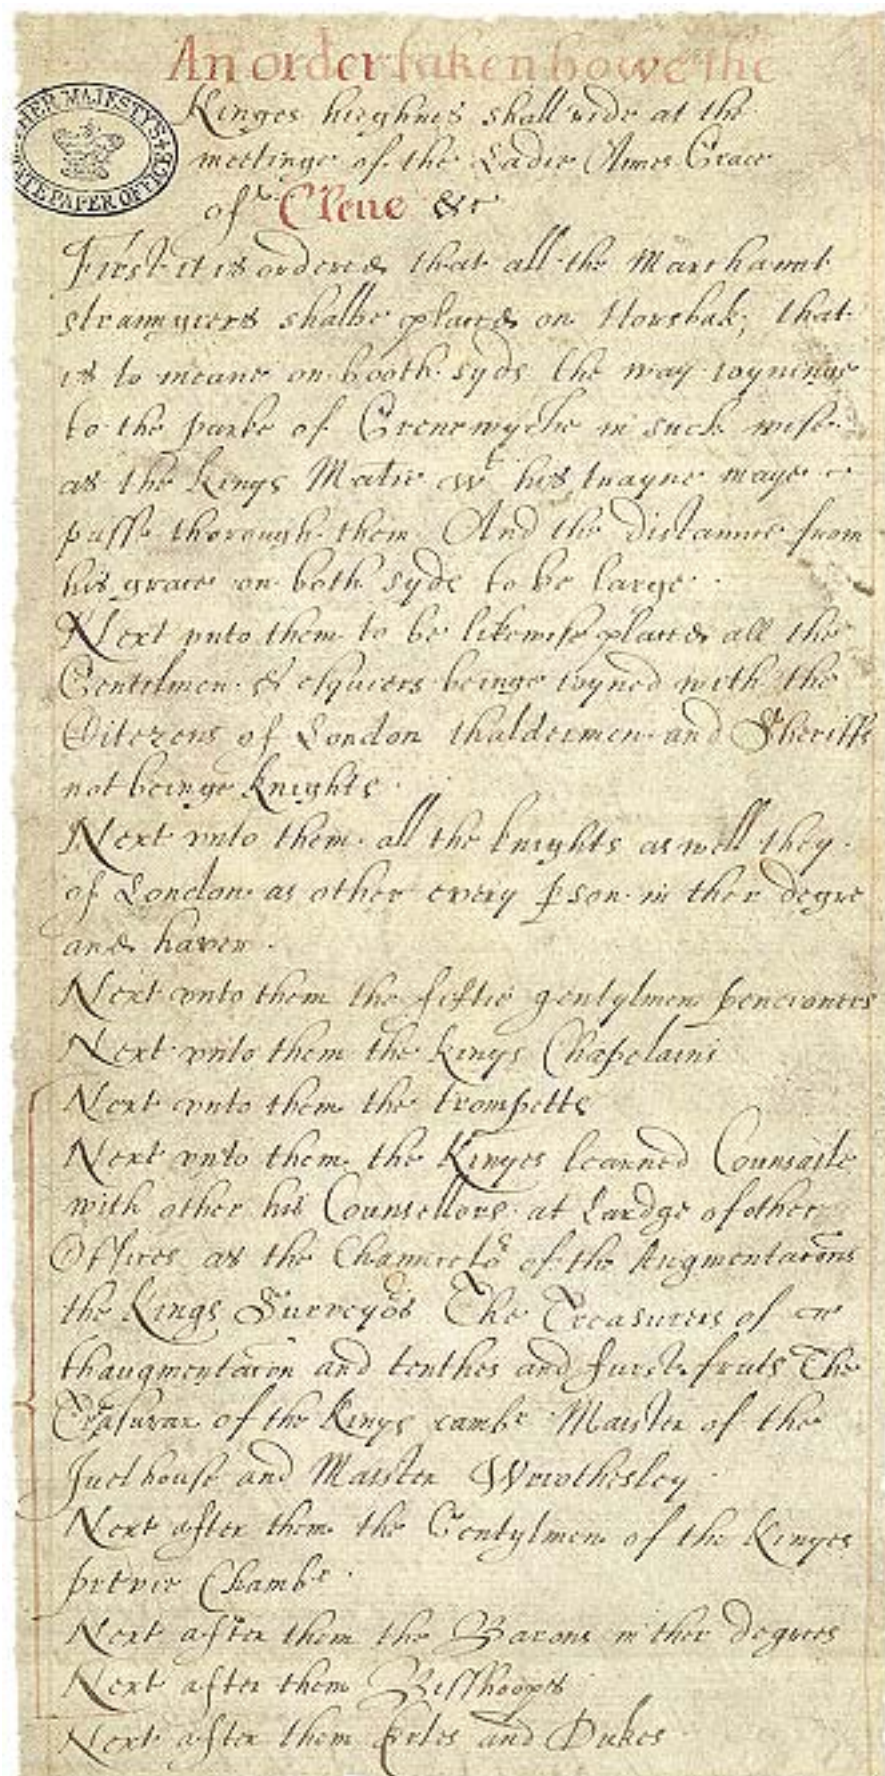 An order taken howe the
HER MAJESTY'S STATE PAPER OFFICE
Kinges hieghnes shall ride at the
meetinge of the Ladie Annes Grace
of Cleue &c
First it is ordered that all the Marchannt
stranngiers shalbe placed on Horsbak, that
is to meane on booth syds the way ioyninge
to the parke of Grenewyche in such wise
as the Kings Matie wt his trayne maye
passe thorough them And the distannce from
his grace on both syde to be large.
Next vnto them to be likewise placed all the
Gentilmen & esquiers beinge ioyned with the
Citezens of London thaldermen and Sheriffs
not beinge knights.
Next vnto them all the knights as well they
of London as other every ꝑson in ther degre
and haver.
Next vnto them the fiftie gentylmen pencioners
Next vnto them the kings Chapelains
Next vnto them the trompetts
Next vnto them the Kinges learned Counsaile
with other his Counsellors at Lardge of other
Offices as the Channcelor of the Augmentacons
the Kings Surveyors The Treasurers of
thaugmentacon and tenthes and furst fruts The
Tresurar of the Kings cambr Maister of the
Juelhouse and Maister Wriothesley.
Next after them the Gentylmen of the Kinges
previe Chambr.
Next after them the Barons in ther degrees
Next after them Bisshoopes
Next after them Erles and Dukes